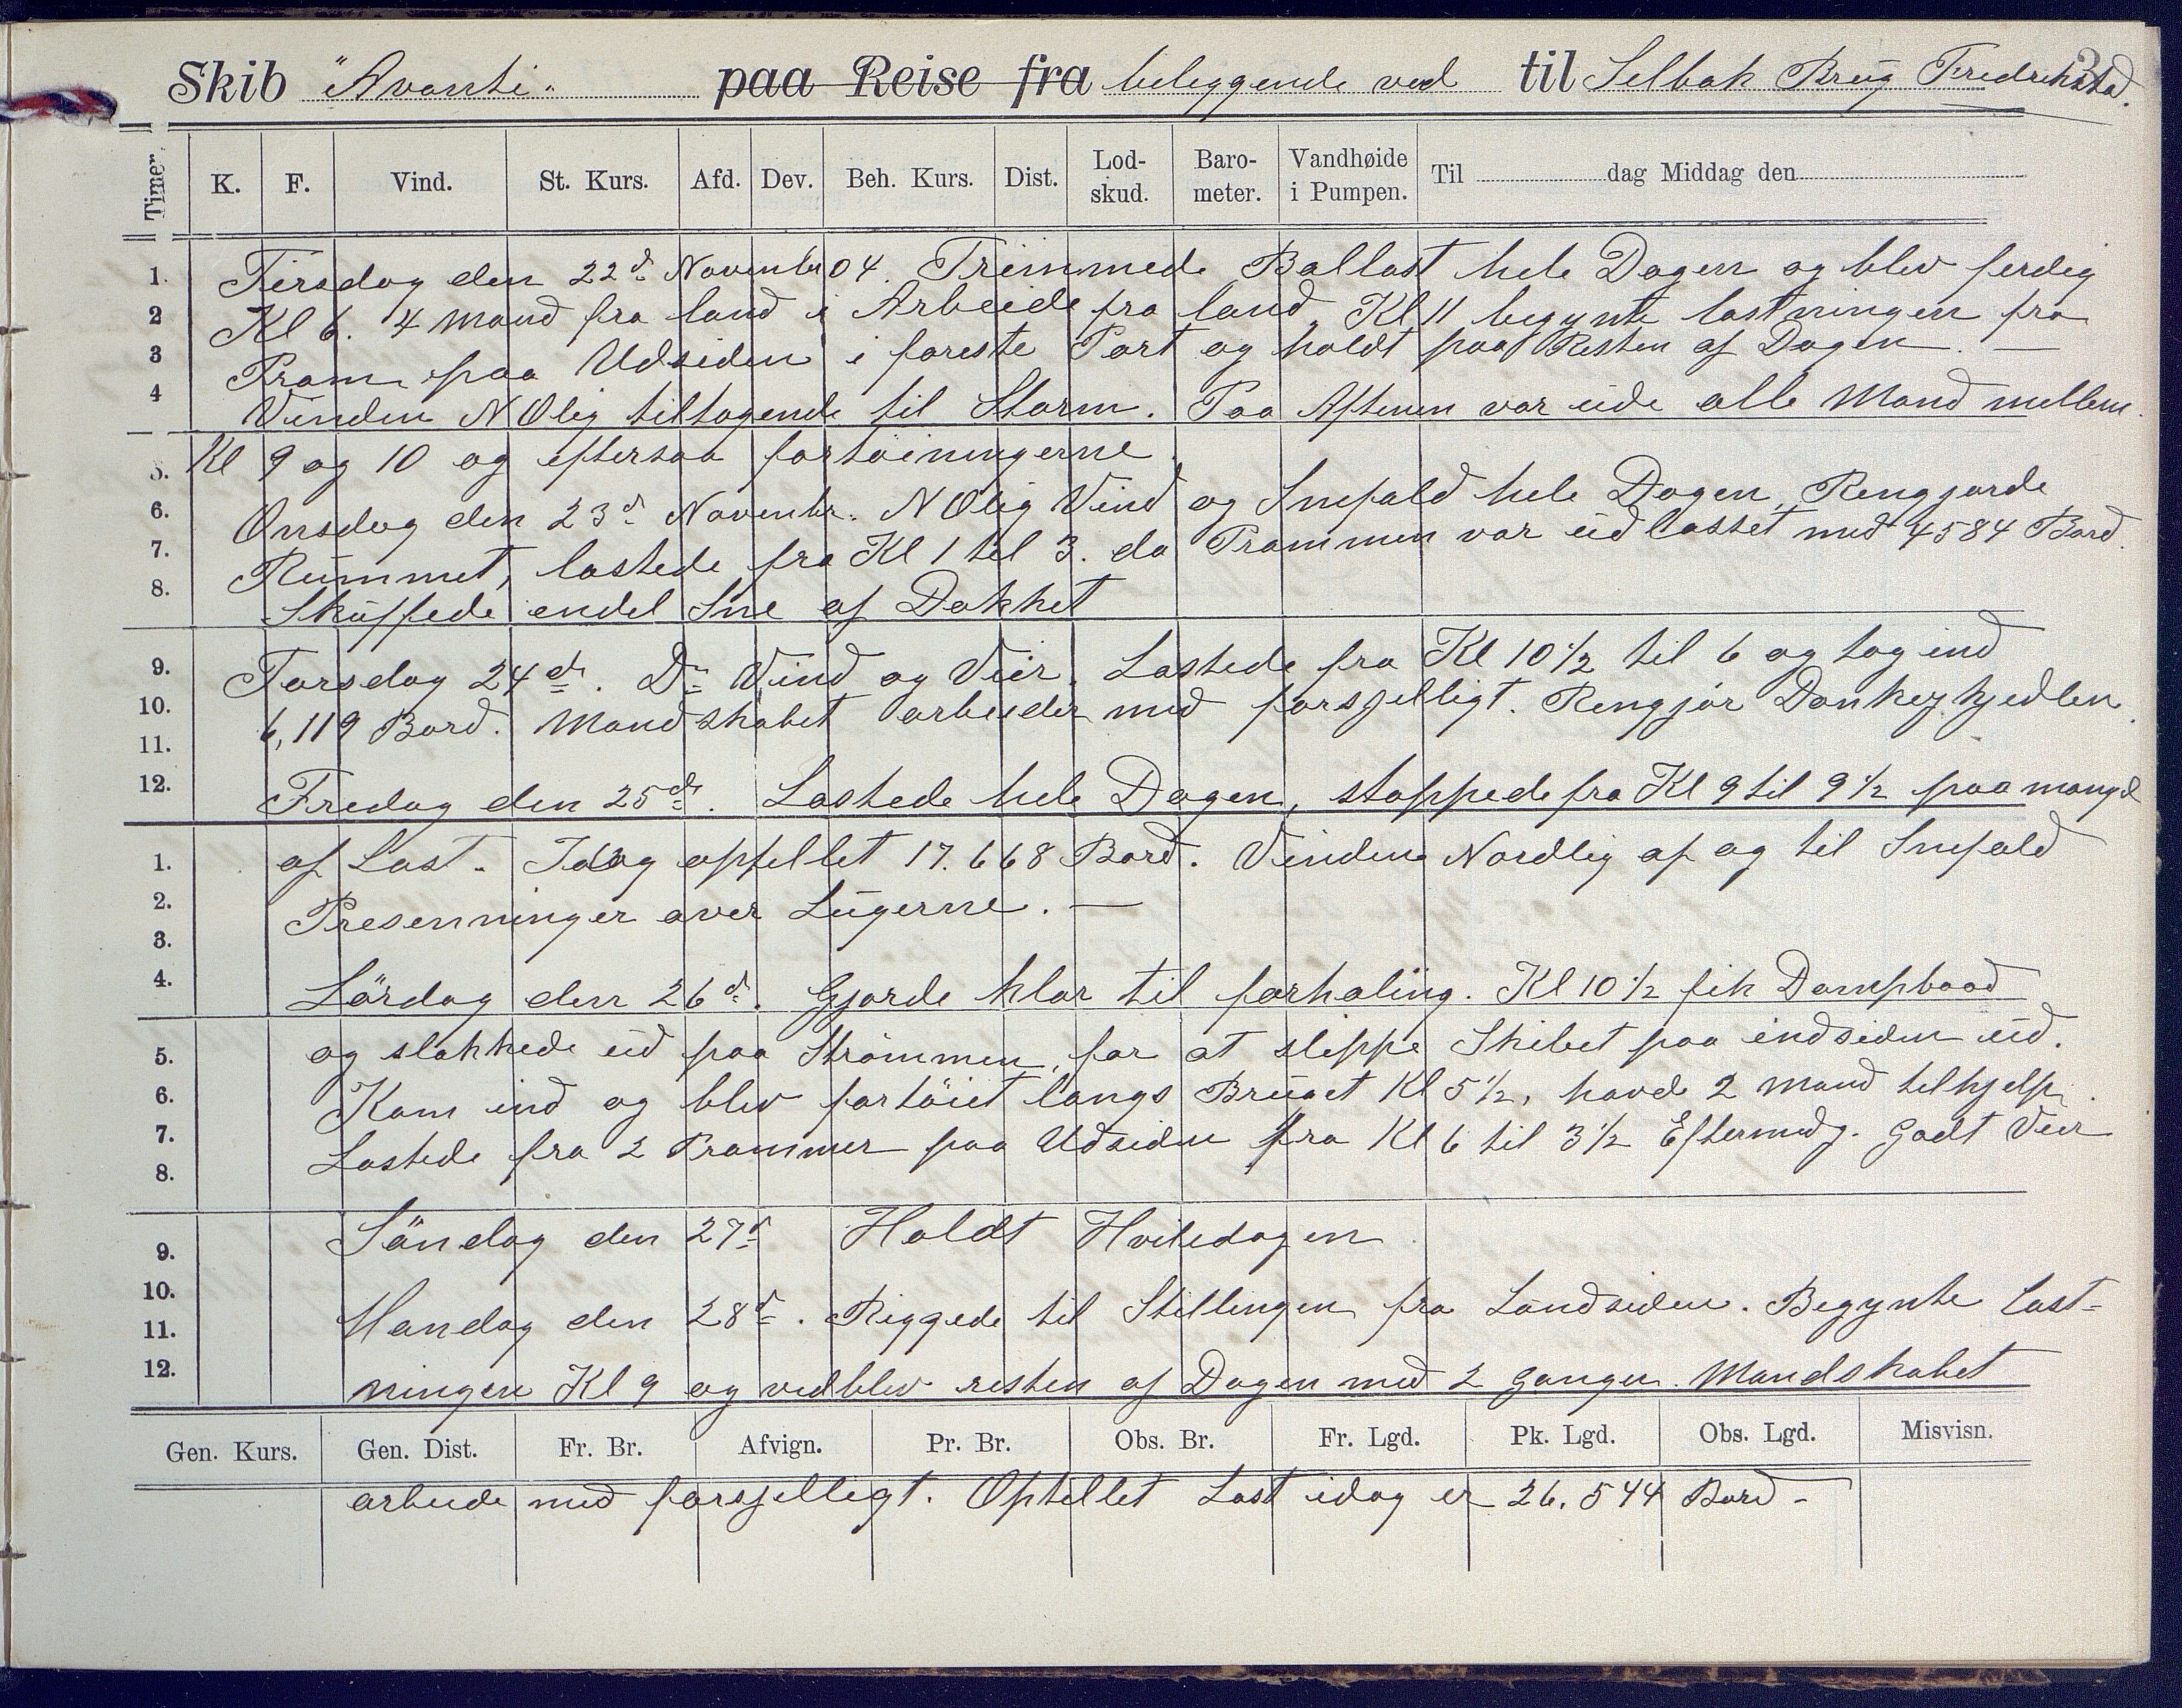 Skib "Avanti" paa Reise fra beleggende ved til Selbak Brug Fredrikstad.
Timer. K. F. Vind. St. Kurs. Afd. Dev. Beh. Kurs. Dist. Lod-skud. Baro-meter. Vandhøide i Pumpen. Til dag Middag den
1. Tirsdag den 22d Novembr 04. Trimmede Ballast hele Dagen og blev ferdig
2 Kl 6. 4 Mand fra land i Arbeide fra land, Kl 11 begynte lastningen fra
3 Pram paa Udsiden i foreste Port og holdt paa Resten af Dagen. —
4 Vinden NOlig tiltagende til Storm. Paa Aftenen var ude alle Mand mellem
5. Kl 9 og 10 og eftersaa fortøiningerne.
6. Onsdag den 23d Novembr. NOlig Vind og Snefald hele Dagen, Rengjorde
7. Rummet, lastede fra Kl 1 til 3. da Prammen var udlasset med 4584 Bord.
8. Skuffede endel Sne af Dækket
9. Torsdag 24de. Do Vind og Veir. Lastede fra Kl 10½ til 6 og tog ind
10. 6,119 Bord. Mandskabet arbeider med forsjelligt. Rengjør Donkeykjedlen.
11.
12. Fredag den 25de. Lastede hele Dagen, stoppede fra Kl 9 til 9½ paa mangel
1. af Last. Idag optellet 17.668 Bord. Vinden Nordlig af og til Snefald
2. Presenninger over Lugerne. —
3.
4. Lördag den 26d. Gjorde klar til forhaling. Kl 10½ fik Dampbaad
5. og slakkede ud paa Strømmen, for at slippe Skibet paa indsiden ud.
6. Kom ind og blev fortöiet langs Bruget Kl 5½, havde 2 Mand til hjelp.
7. Lastede fra 2 Prammer paa Udsiden fra Kl 6 til 3½ Eftermdg. Godt Veir
8.
9. Söndag den 27d Holdt Hviledagen.
10.
11. Mandag den 28d. Riggede til Stillingen fra Landsiden. Begynte last=
12. ningen Kl 9 og vedblev resten af Dagen med 2 ganger. Mandskabet
Gen. Kurs. Gen. Dist. Fr. Br. Afvign. Pr. Br. Obs. Br. Fr. Lgd. Pk. Lgd. Obs. Lgd. Misvisn.
arbeide med forsjelligt. Optellet Last idag er 26.544 Bord —